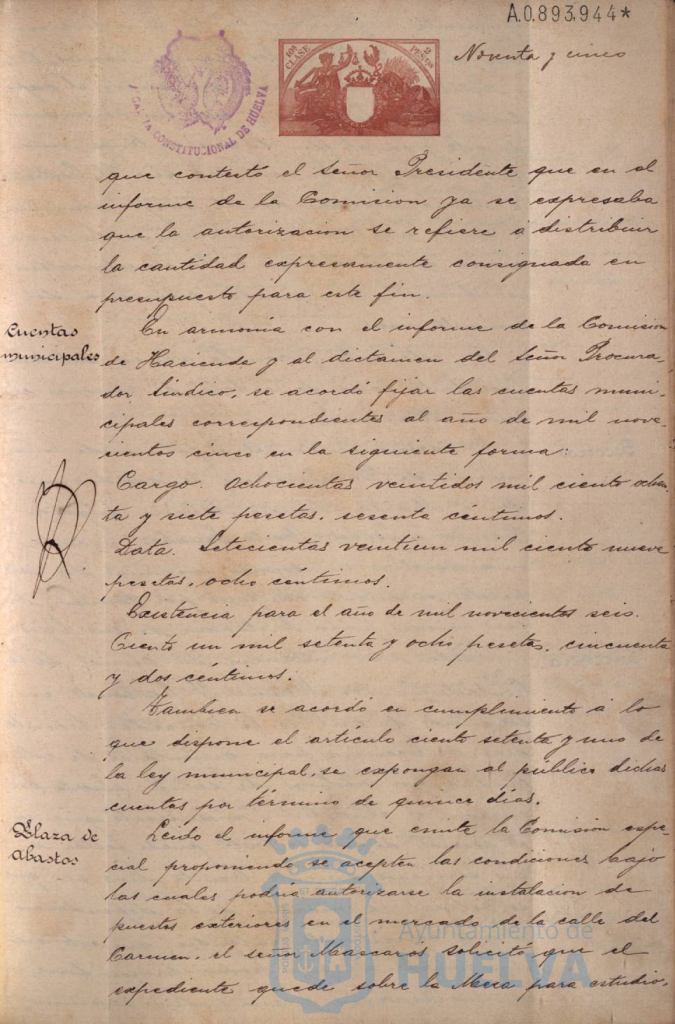 A.0.893,944*
Noventa y cinco
10ª CLASE
2 PESETAS
ALCALDIA CONSTITUCIONAL DE HUELVA
que contestó el Señor Presidente que en el
informe de la Comision ya se expresaba
que la autorizacion se refiere á distribuir
la cantidad expresamente consignada en
presupuesto para este fin.
Cuentas
municipales
En armonia con el informe de la Comision
de Hacienda y al dictamen del Señor Procura-
dor Sindico, se acordó fijar las cuentas muni-
cipales correspondientes al año de mil nove-
cientos cinco en la siguiente forma:
Cargo. Ochocientas veintidos mil ciento ochen-
ta y siete pesetas, sesenta céntimos.
Data. Setecientas veintiun mil ciento nueve
pesetas, ocho céntimos.
Existencia para el año de mil novecientos seis.
Ciento un mil setenta y ocho pesetas, cincuenta
y dos céntimos.
Tambien se acordó en cumplimiento á lo
que dispone el artículo ciento setenta y uno de
la ley municipal, se expongan al público dichas
cuentas por término de quince días.
Plaza de
Abastos
Leido el informe que emite la Comision espe-
cial proponiendo se acepten las condiciones bajo
las cuales podria autorizarse la instalacion de
puestos exteriores en el mercado de la calle del
Carmen, el señor Mascaros solicitó que el
expediente quede sobre la Mesa para estudio.
Ayuntamiento de
HUELVA